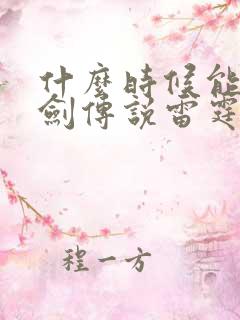 什麼時候能
劍傳説雷霆
程一方